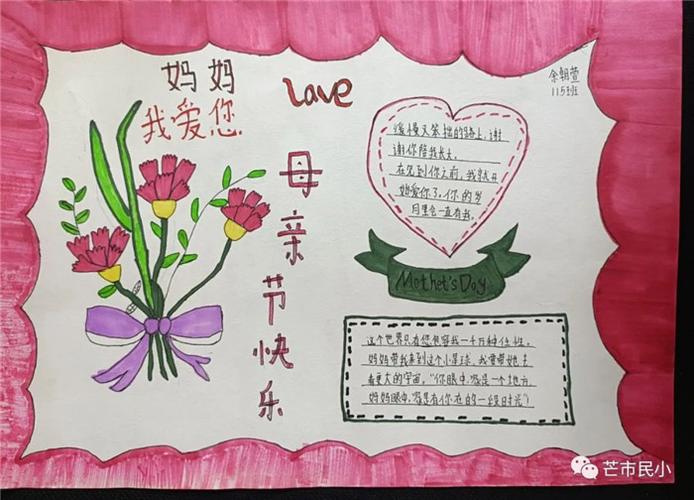 妈妈
我爱您
Love
余朝萱
115班
母亲节快乐
缓慢又笨拙的路上,谢
谢你陪我长大.
在见到你之前,我就开
始爱你了.你的岁
月里会一直有我.
Mothet's Day
这个世界只有您包容我一千万种任性,
妈妈带我来到这个小星球,我要带她去
看更大的宇宙。"你眼中,家是一个地方,
妈妈眼中,家是有你在的一段时光")
芒市民小